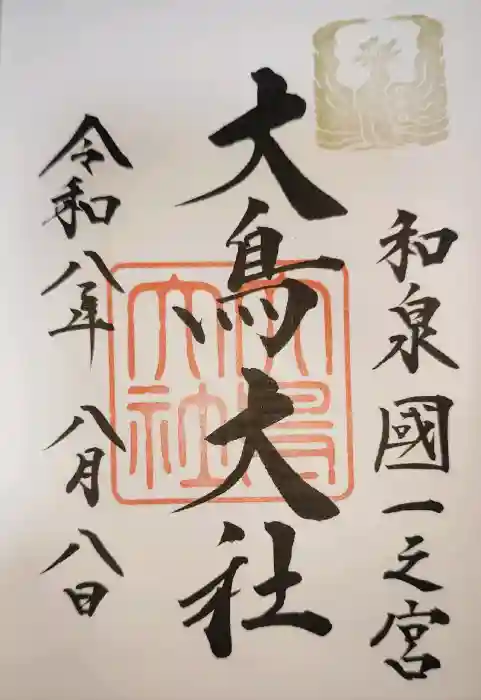 和泉國一之宮
大鳥大社
令和八年八月八日
大鳥大社